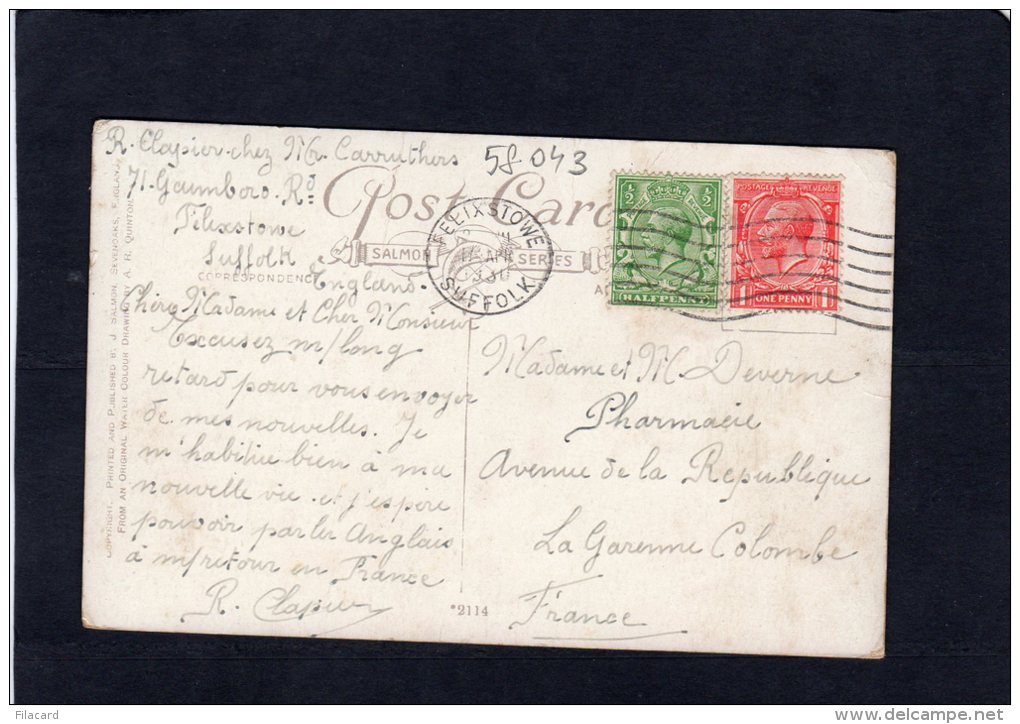 R. Clapier chez Mr. Carruthers
58-043
71. Gainsboro. Rd
Filixstowe
Suffolk
England.
Post Card
SALMON SERIES
FELIXSTOWE
APR
SUFFOLK
½ ½
HALFPENNY
POSTAGE REVENUE
1 ONE PENNY 1
CORRESPONDENCE
Chère Madame et Cher Monsieur
Excusez m/long
retard pour vous envoyer
de mes nouvelles. Je
m'habitue bien à ma
nouvelle vie et j'espère
pouvoir parler Anglais
à m/retour en France
R. Clapier
*2114
Madame et M. Deverne
Pharmacie
Avenue de la Republique
La Garenne Colombe
France
COPYRIGHT, PRINTED AND PUBLISHED BY J. SALMON, SEVENOAKS, ENGLAND.
FROM AN ORIGINAL WATER COLOUR DRAWING BY A. R. QUINTON
Filacard
delcampe.net